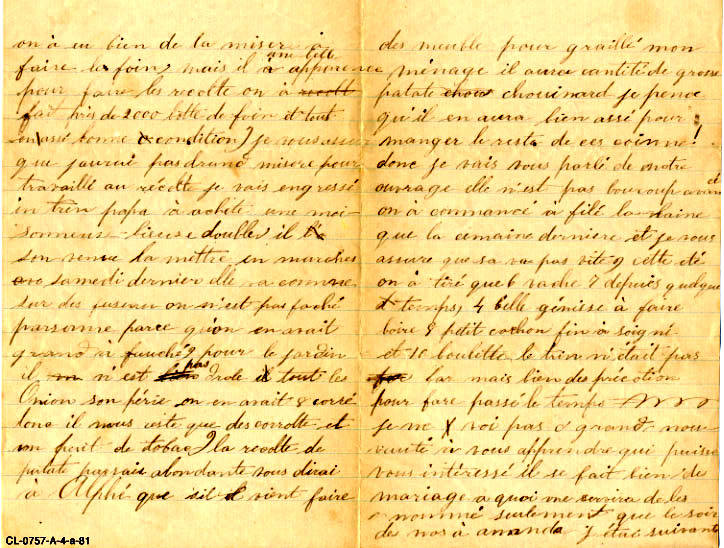 on à eu bien de la miser à
faire le foin, mais il à une belle apparence
pour faire les recolte on à recolt
fait près de 2000 botte de foin et tout
en assé bonne condition) je vous assure
que jaurai pas grand misere pour
travaillé au récolte je vais engressé
in tren popa à acheté une moi-
sonneuse lieuse double, il
son venue la mettre en marches
samedi dernier elle a comme
sur des fuseau on n'est pas faché
parsonne parce qu'on en avait
grand à fauché) pour le jardin
il n'est pas drole il tout les
Onion son périe on en avait 8 corré
donc il nous reste que des corrotte et
un ptit de tobac) la recolte de
patate parrais abondante vous dirai
à Alphé que s'il vient faire
des meuble pour graillé mon
ménage il aura cantité de grosse
patate chou chouinard je pence
qu'il en aura bien assé pour
manger le reste de ces coinne!
donc je vais vous parlé de notre
ouvrage elle n'est pas boucoup avancé
on à commancé à filé la laine
que la cemaine derniere et je vous
assure que sa va pas vite) cette été
on à tiré que 6 vache 7 depuis quelque
temps, 4 belle génisse à faire
boire 8 ptit cochon fin à soigné
et 10 boulette le trin n'était pas
for mais bien des précotion
pour fare passé le temps
je ne voi pas grand nou-
vauté à vous apprendre qui puisse
vous intéressé il se fait bien des
mariage a quoi me servira de les
nommé seulement que le soir
des nos à amanda j'étai suivante
CL-0757-A-4-a-81